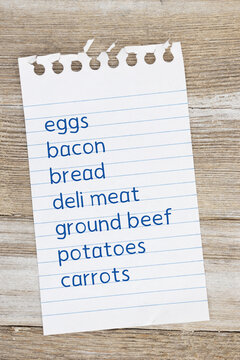 eggs
bacon
bread
deli meat
ground beef
potatoes
carrots